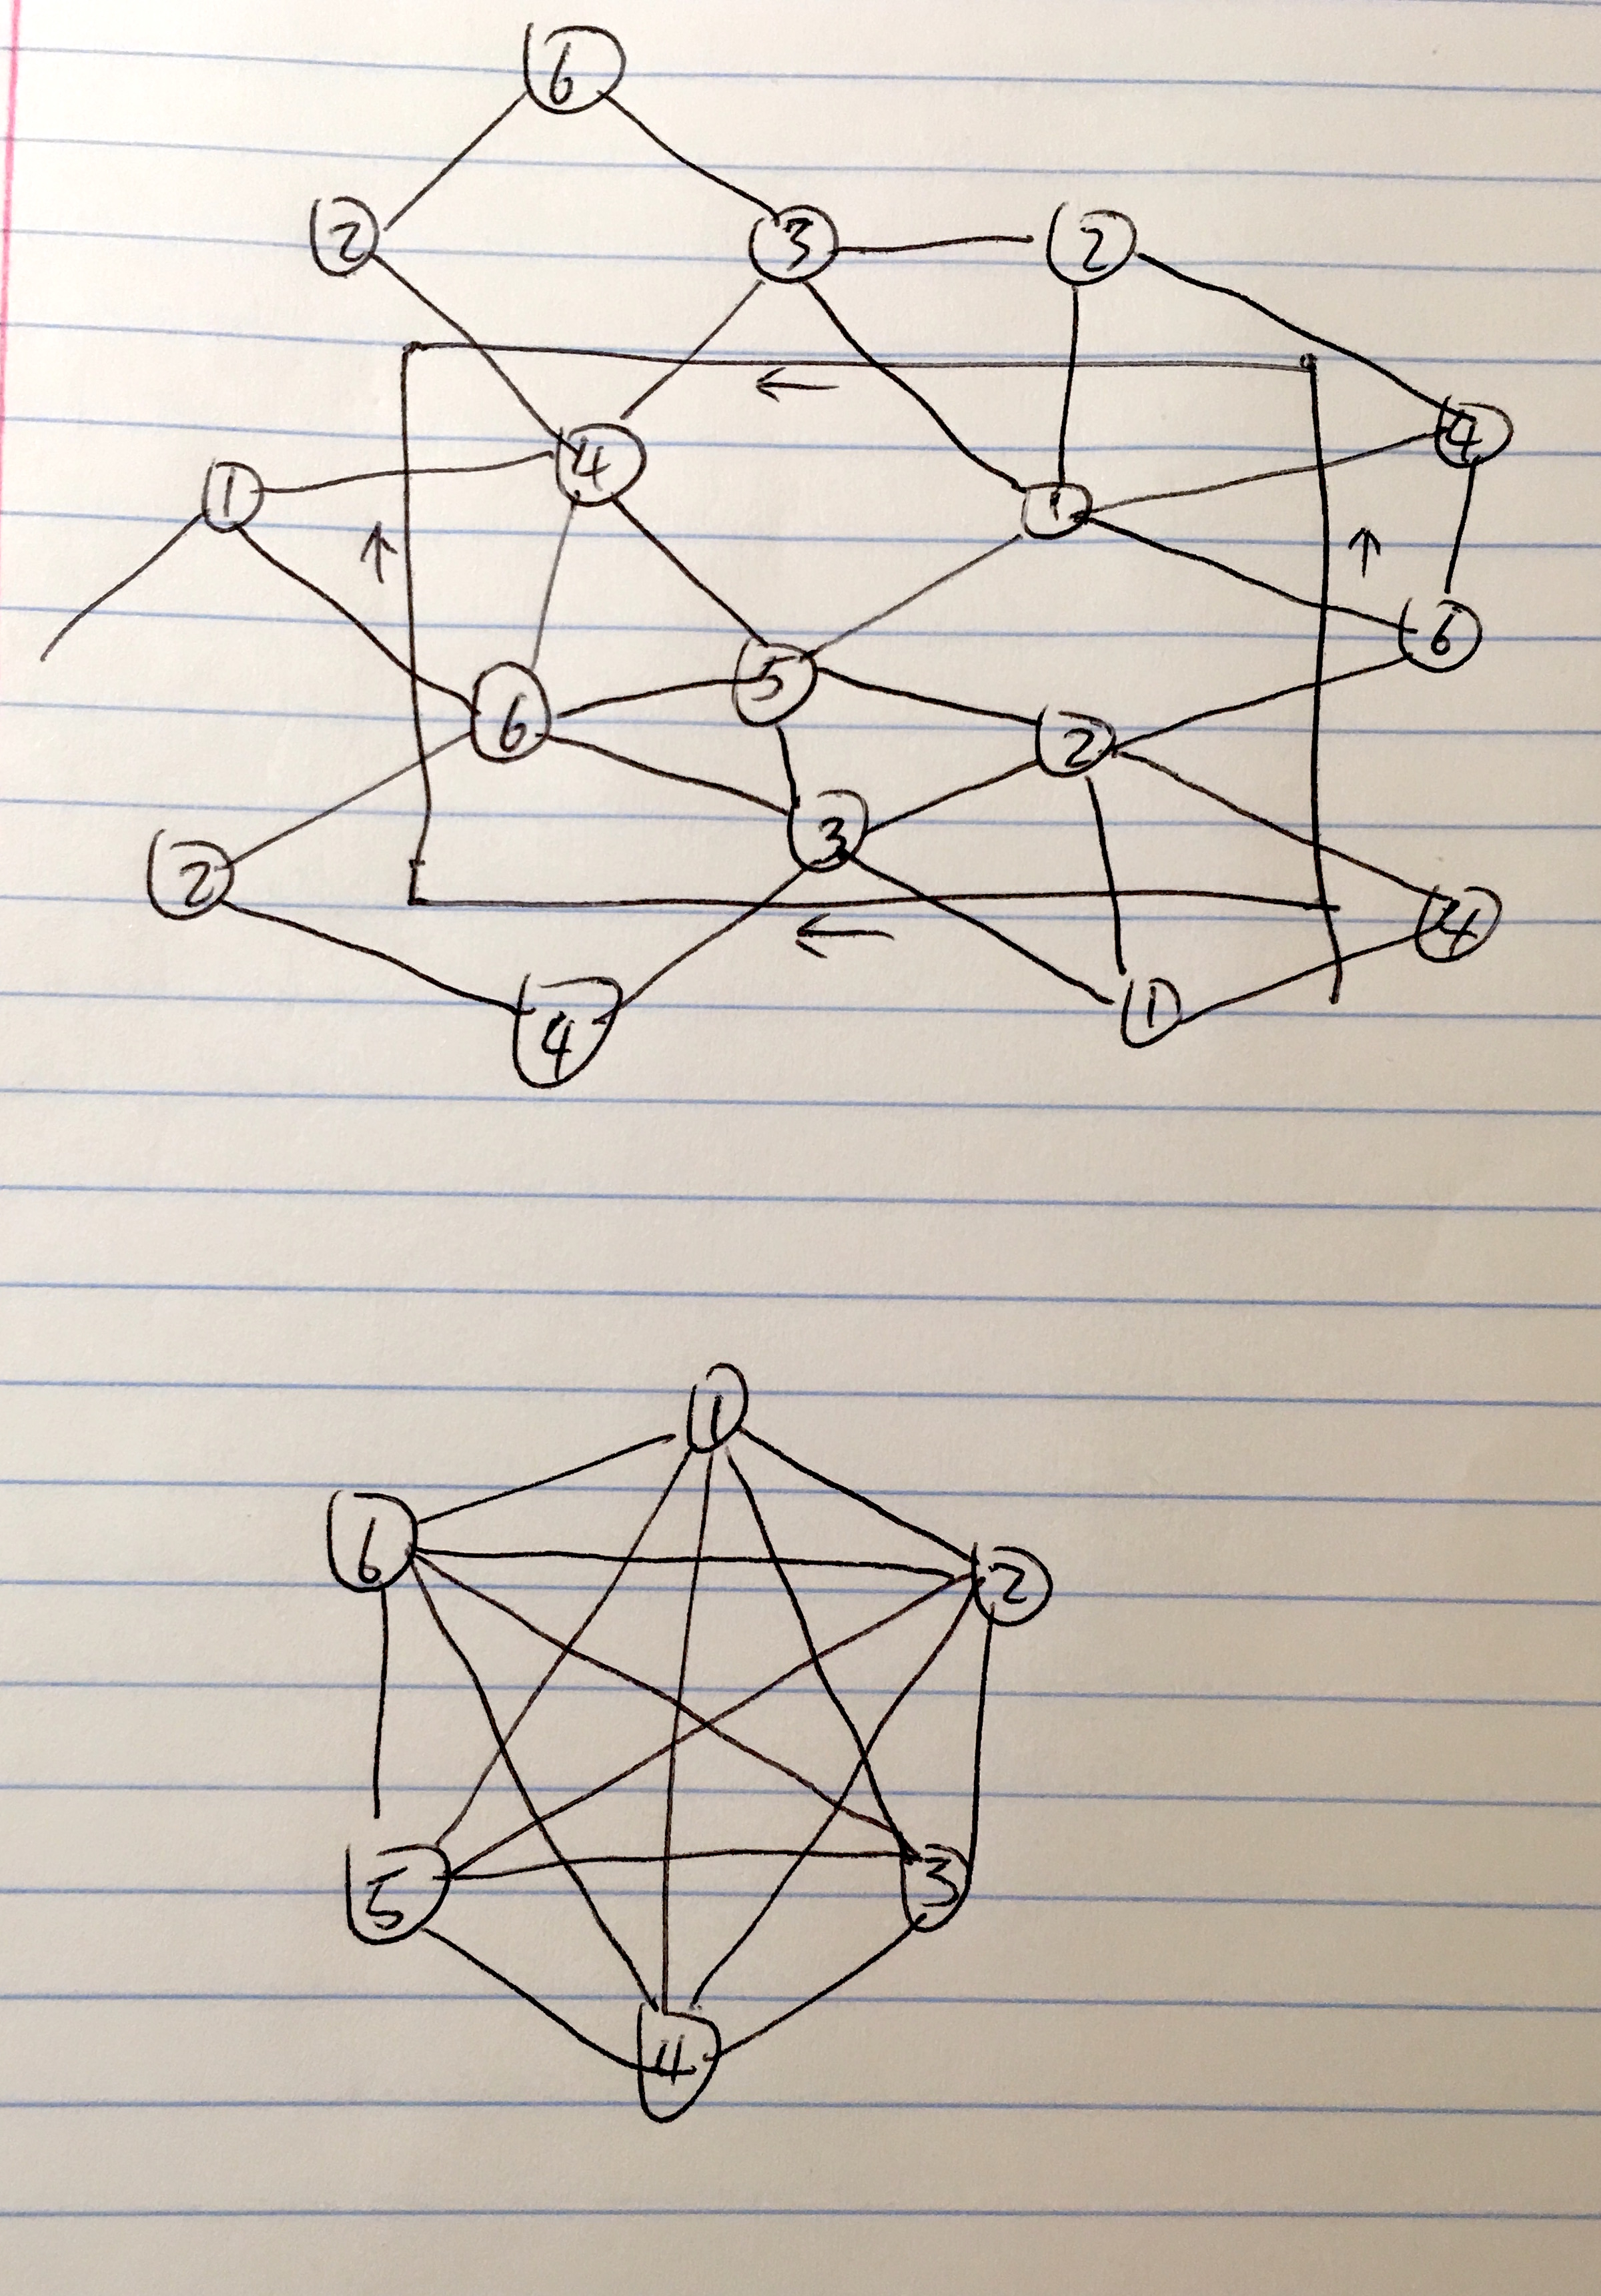 6
2 3 2
4
1 4 1
6
6 5 2
3
2 4
4 1
1
6 2
5 3
4